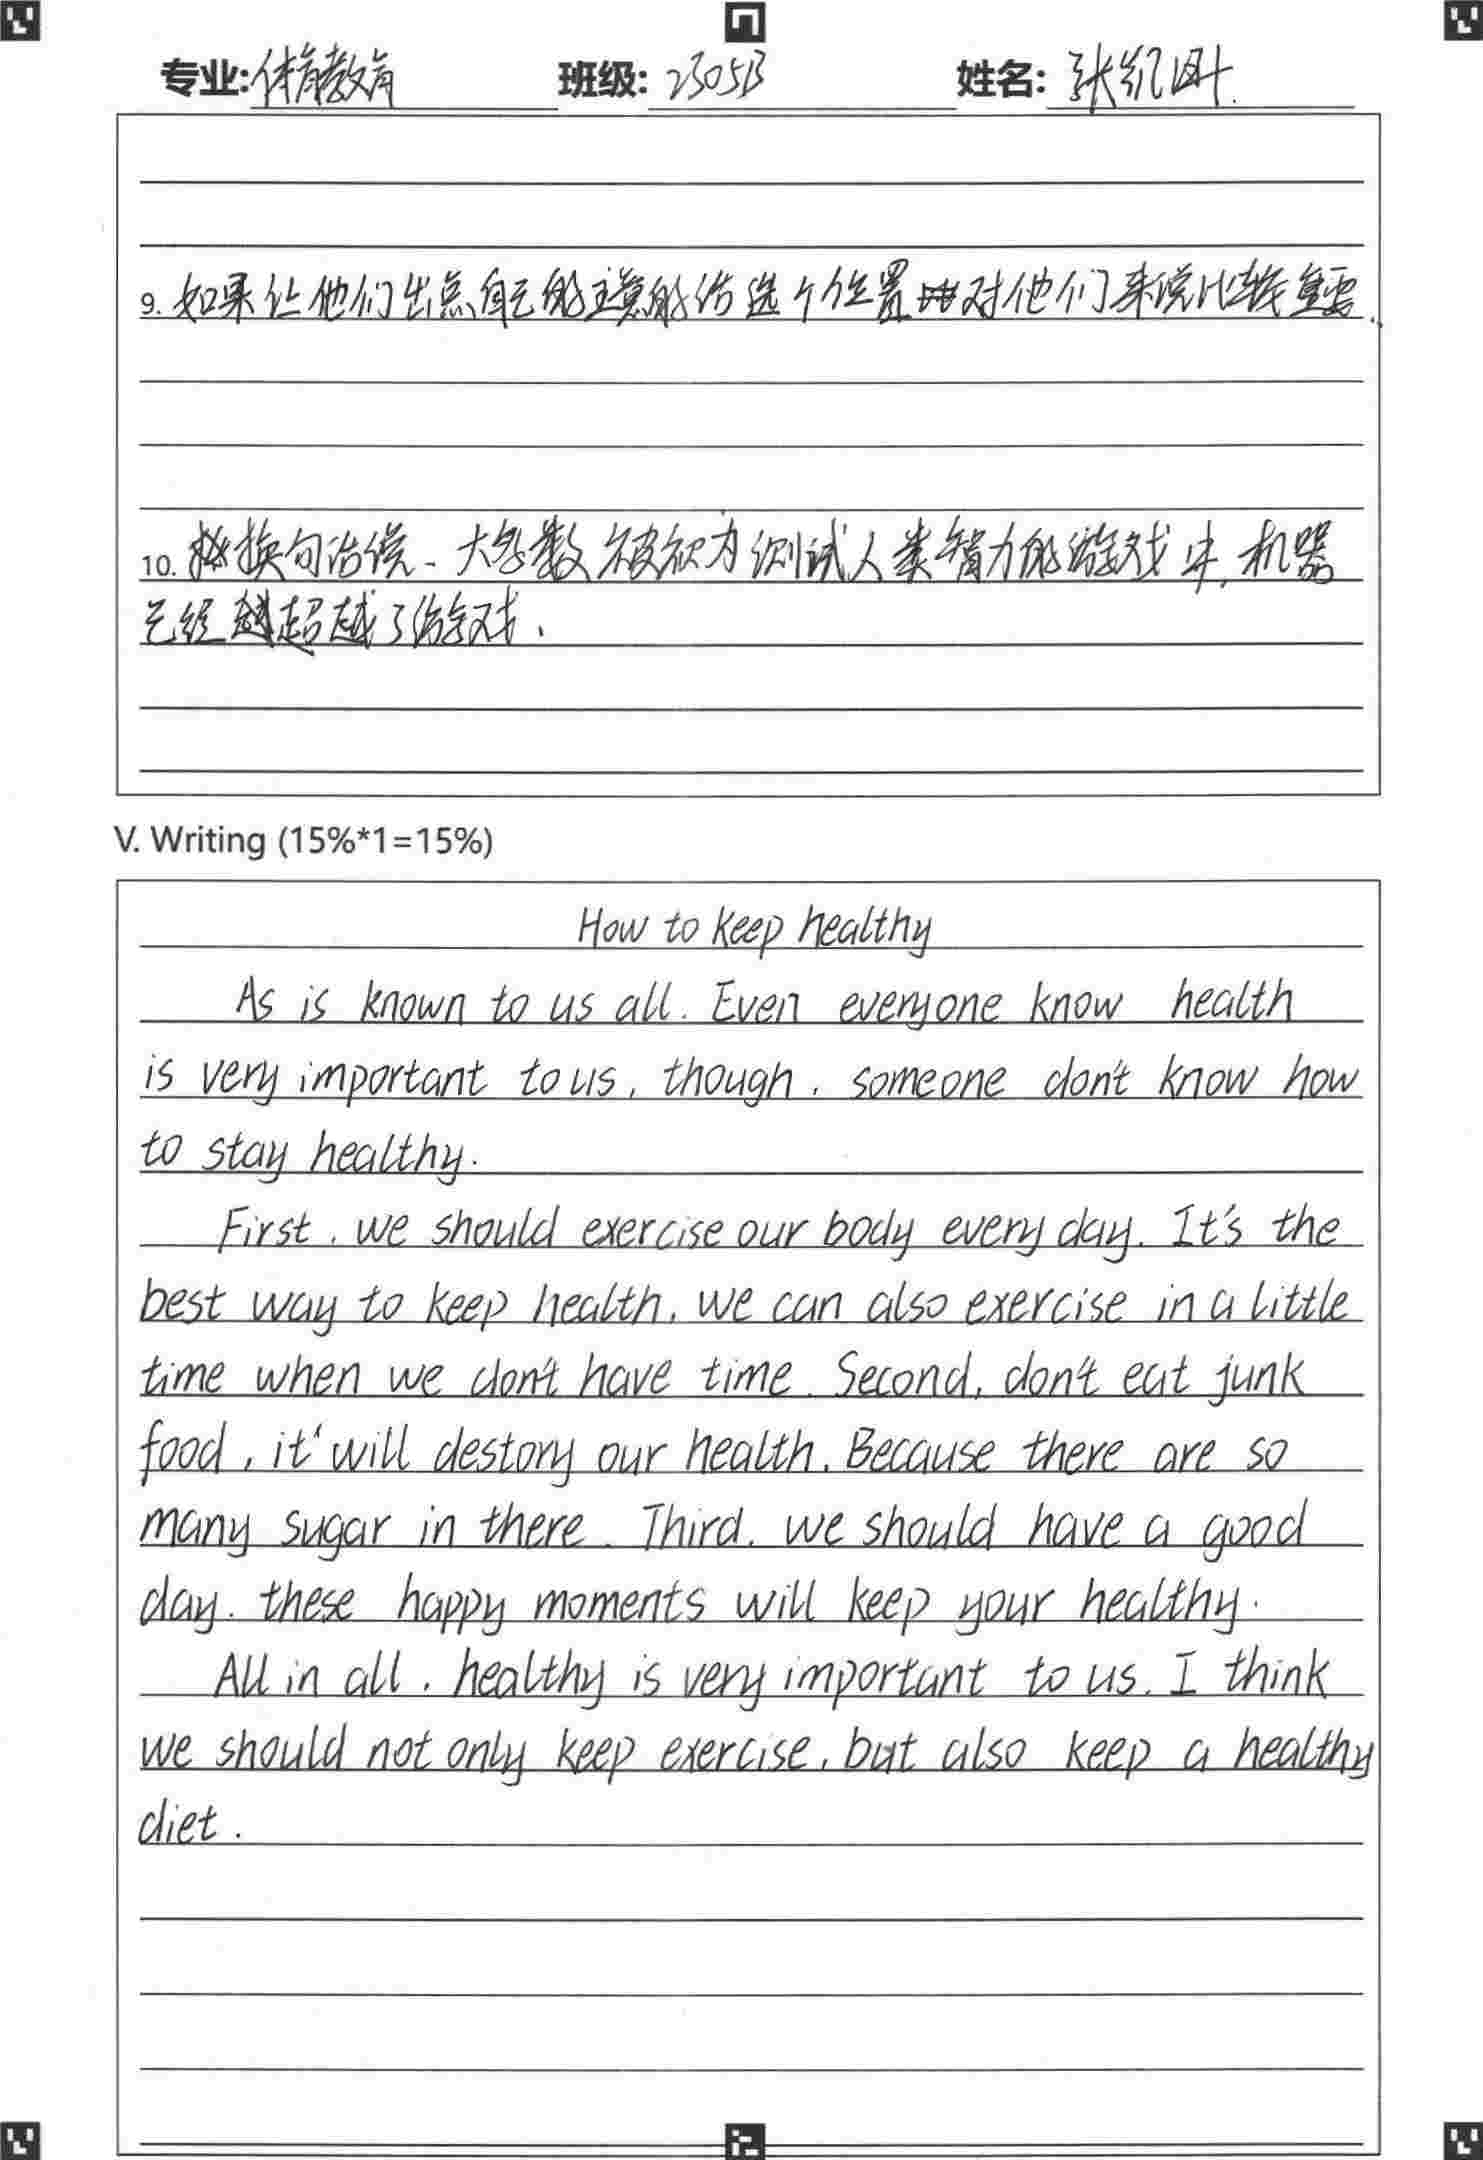 专业: 体育教育 班级: 2305B 姓名: 张凯
9. 如果让他们出点自己的主意能给选个位置对他们来说比较重要.
10. 换句话说、大多数被视为测试人类智力的游戏中,机器
已经超越了游戏.
V. Writing (15%*1=15%)
How to keep healthy
As is known to us all. Even everyone know health
is very important to us, though, someone don't know how
to stay healthy.
First, we should exercise our body every day. It's the
best way to keep health, we can also exercise in a little
time when we don't have time. Second, don't eat junk
food, it' will destory our health. Because there are so
many sugar in there. Third. we should have a good
day. these happy moments will keep your healthy.
All in all, healthy is very important to us. I think
we should not only keep exercise, but also keep a healthy
diet.